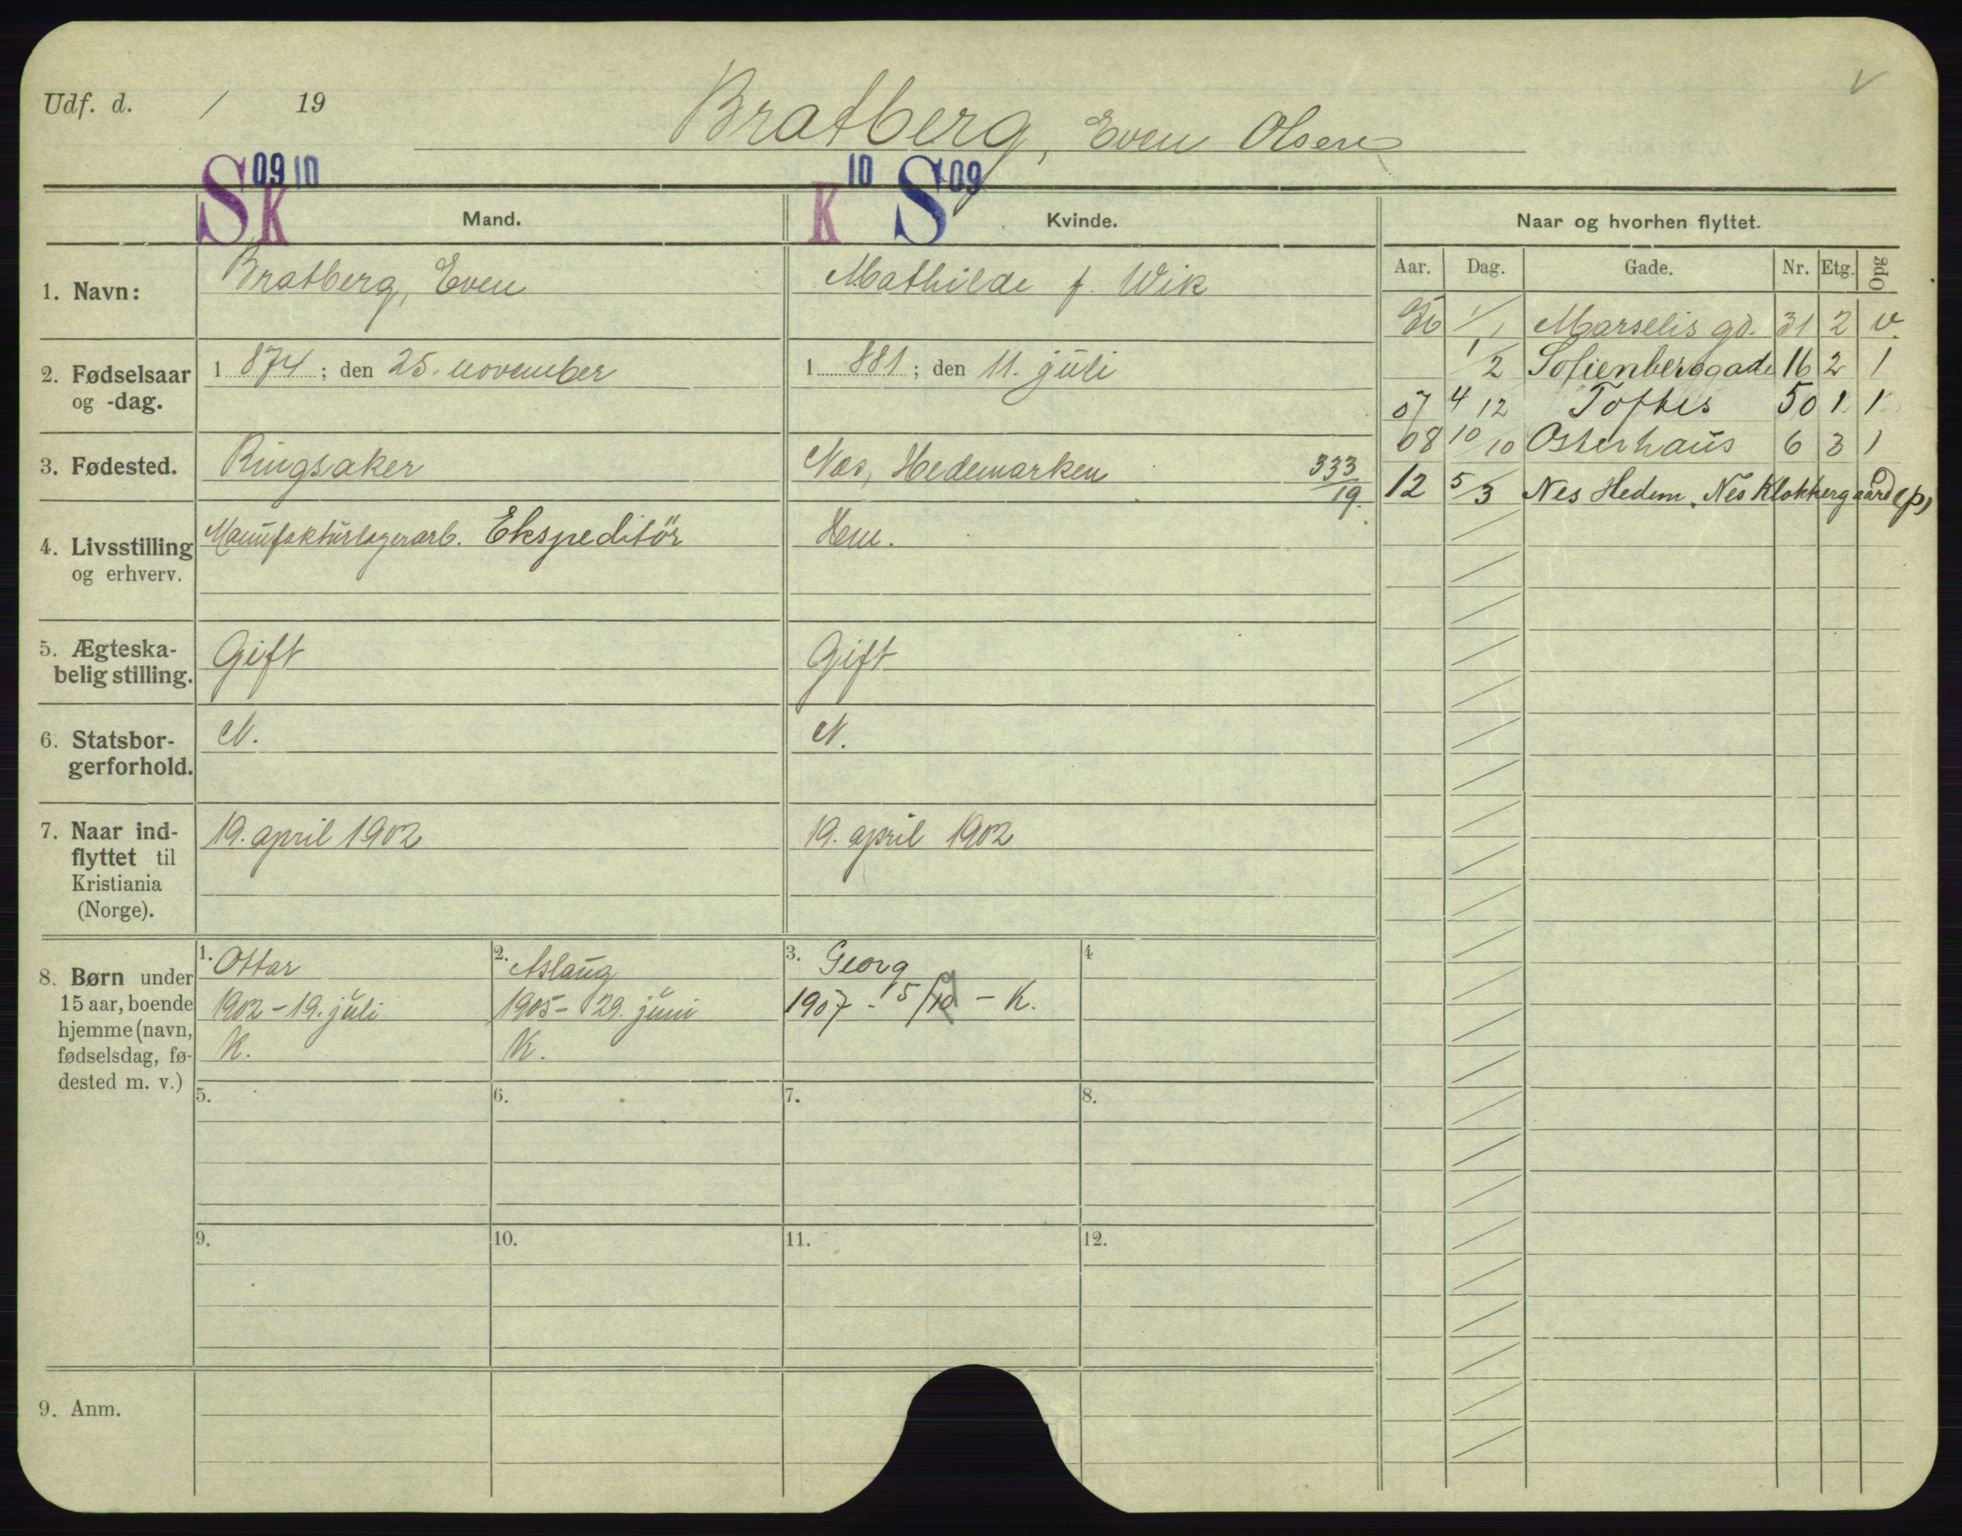 Udf. d. / 19
Bratberg, Even Olsen
V
S 09 K 10
K 10 S 09
Mand.
Kvinde.
Naar og hvorhen flyttet.
Aar. Dag. Gade. Nr. Etg. Opg
1. Navn:
Bratberg, Even
Mathilde f. Wik
2. Fødselsaar
og -dag.
1 874 ; den 25. november
1 881 ; den 11. juli
3. Fødested.
Ringsaker
Næs, Hedemarken 333/19.
4. Livsstilling
og erhverv.
Manufakturlagerarb. Ekspeditör
Hem.
5. Ægteska-
belig stilling.
Gift
Gift
6. Statsbor-
gerforhold.
N.
N.
7. Naar ind-
flyttet til
Kristiania
(Norge).
19. april 1902
19. april 1902
1/1 Marselis gd. 31 2 v.
1/2 Sofienberggade 16 2 1
07 4/12 Toftes 50 1 1
08 10/10 Osterhaus 6 3 1
12 5/3 Nes Hedem. Nes Klokkergaard (p)
8. Børn under
15 aar, boende
hjemme (navn,
fødselsdag, fø-
dested m. v.)
1. Ottar
1902 - 19. juli
K.
2. Aslaug
1905 - 29. juni
K.
3. Georg
1907 - 5/9 - K.
4
5.
6.
7.
8.
9.
10.
11.
12.
9. Anm.